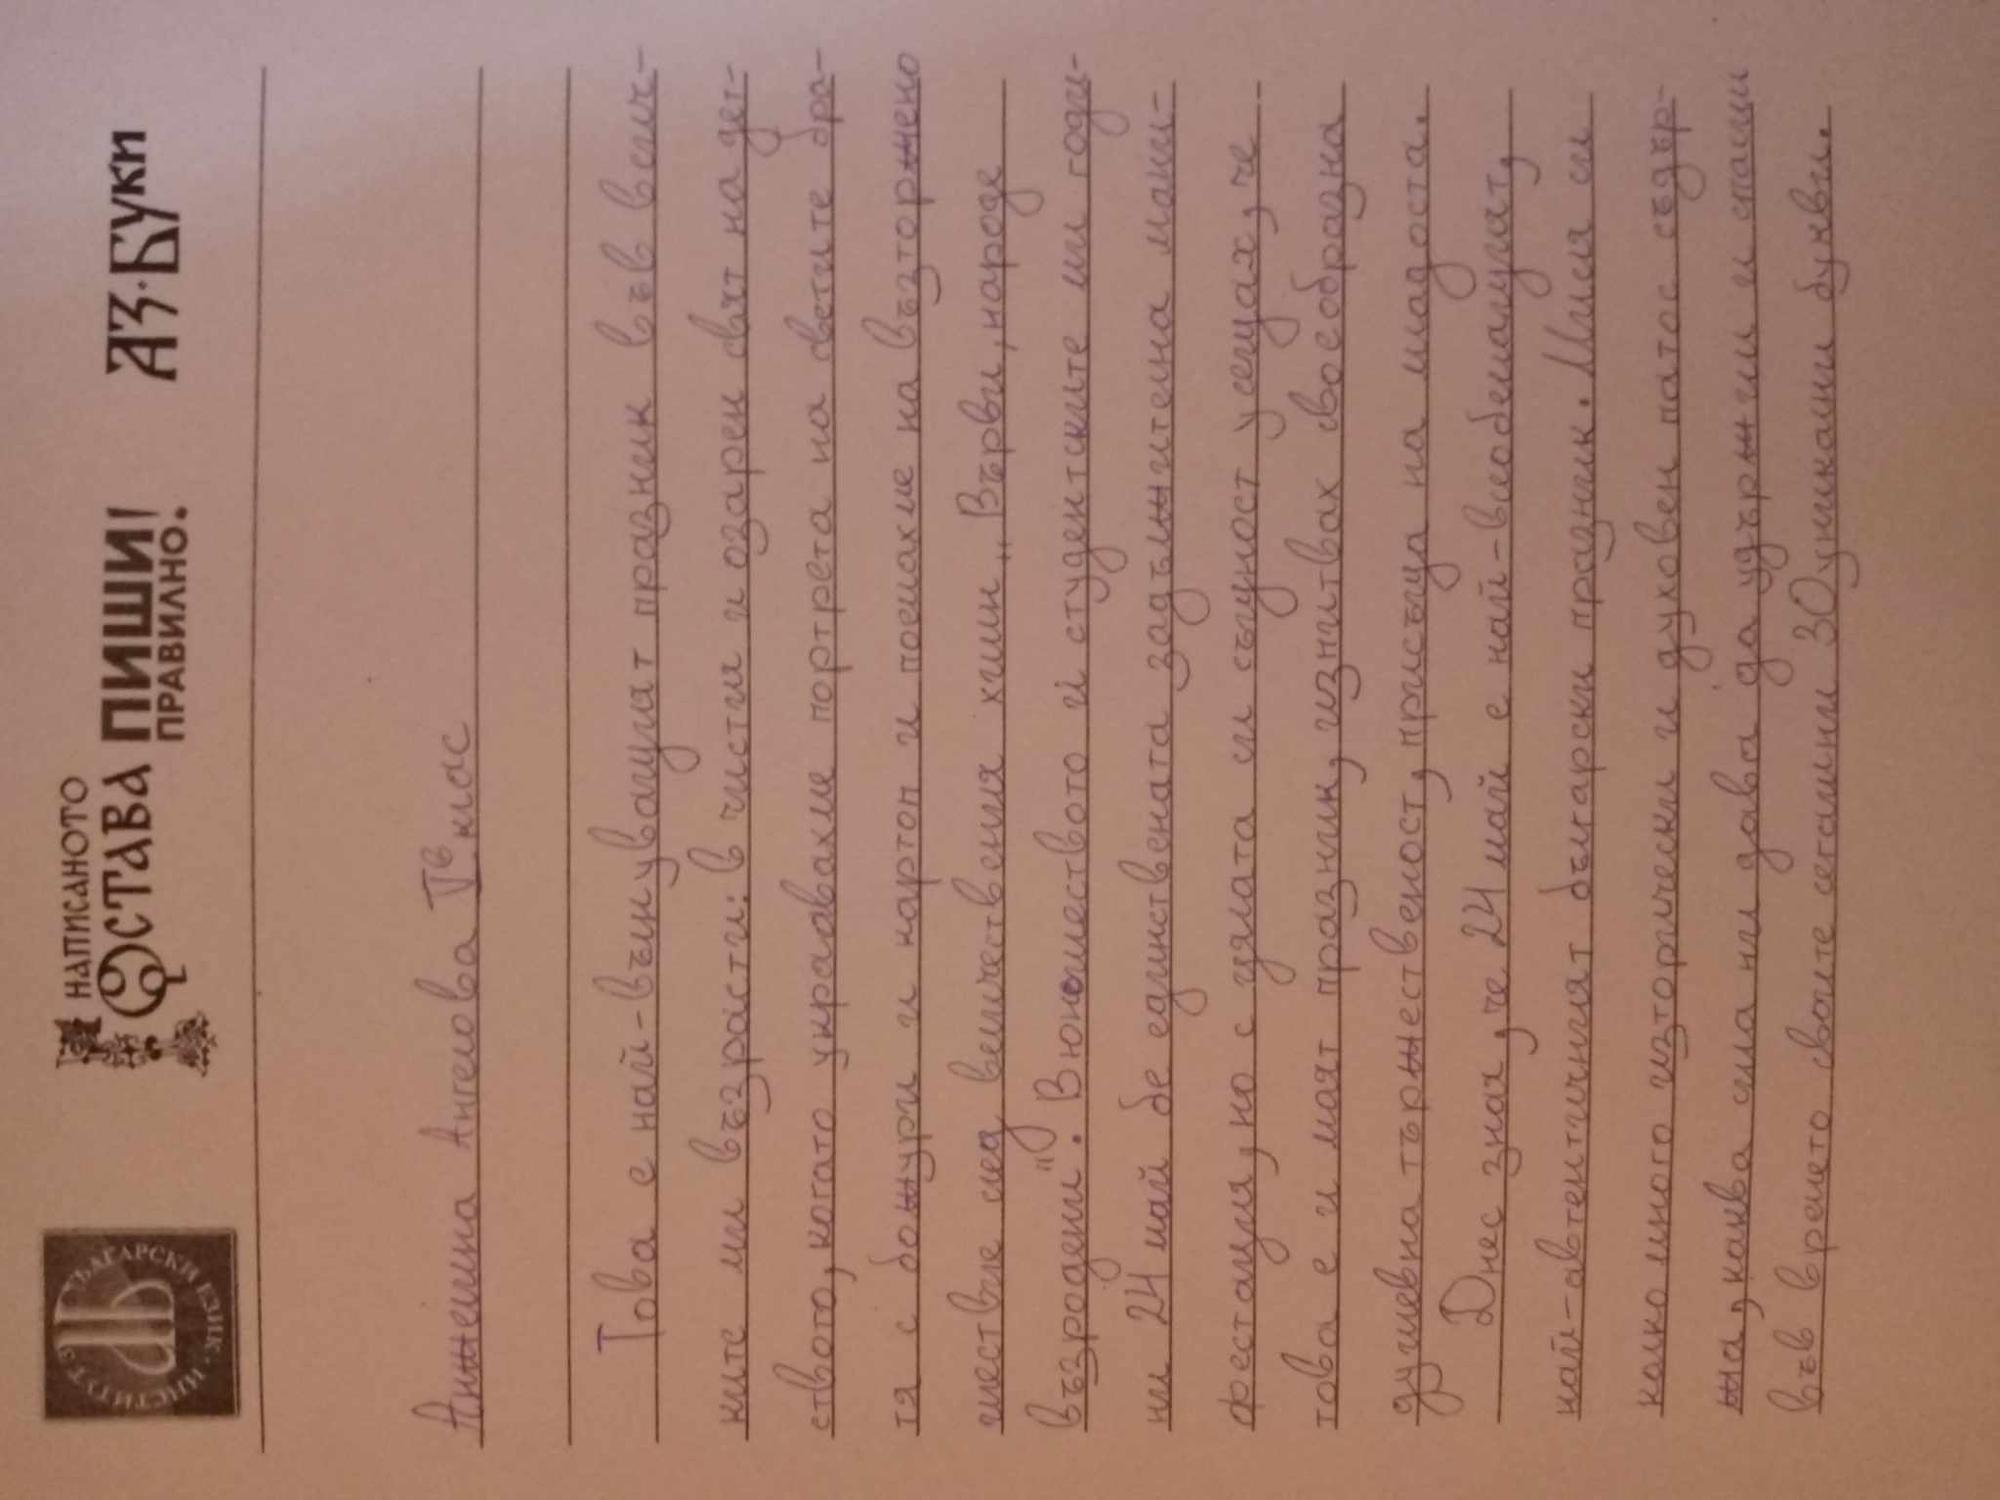 БЪЛГАРСКИ ЕЗИК · ИНСТИТУТ
НАПИСАНОТО
ОСТАВА ПИШИ!
ПРАВИЛНО.
АЗ·БУКИ
Анжелина Ангелова Vв клас
Това е най-вълнуващият празник във всич-
ките ми възрасти: в чистия и озарен свят на дет-
ството, когато украсявахме портрета на светите бра-
тя с божури и картон и поемахме на възторжено
шествие след величествения химн „Върви, народе
възродени". В юношеството и студентските ми годи-
ни 24 май бе единствената задължителна мани-
фестация, но с цялата си същност усещах, че
това е и моят празник, изпитвах своеобразна
душевна тържественост, присъща на младостта.
Днес зная, че 24 май е най-всеобемащият,
най-автентичният български празник. Мисля си
колко много исторически и духовен патос съдър-
жа, каква сила ни дава да удържим и спасим
във времето своите сегашни 30 уникални букви.